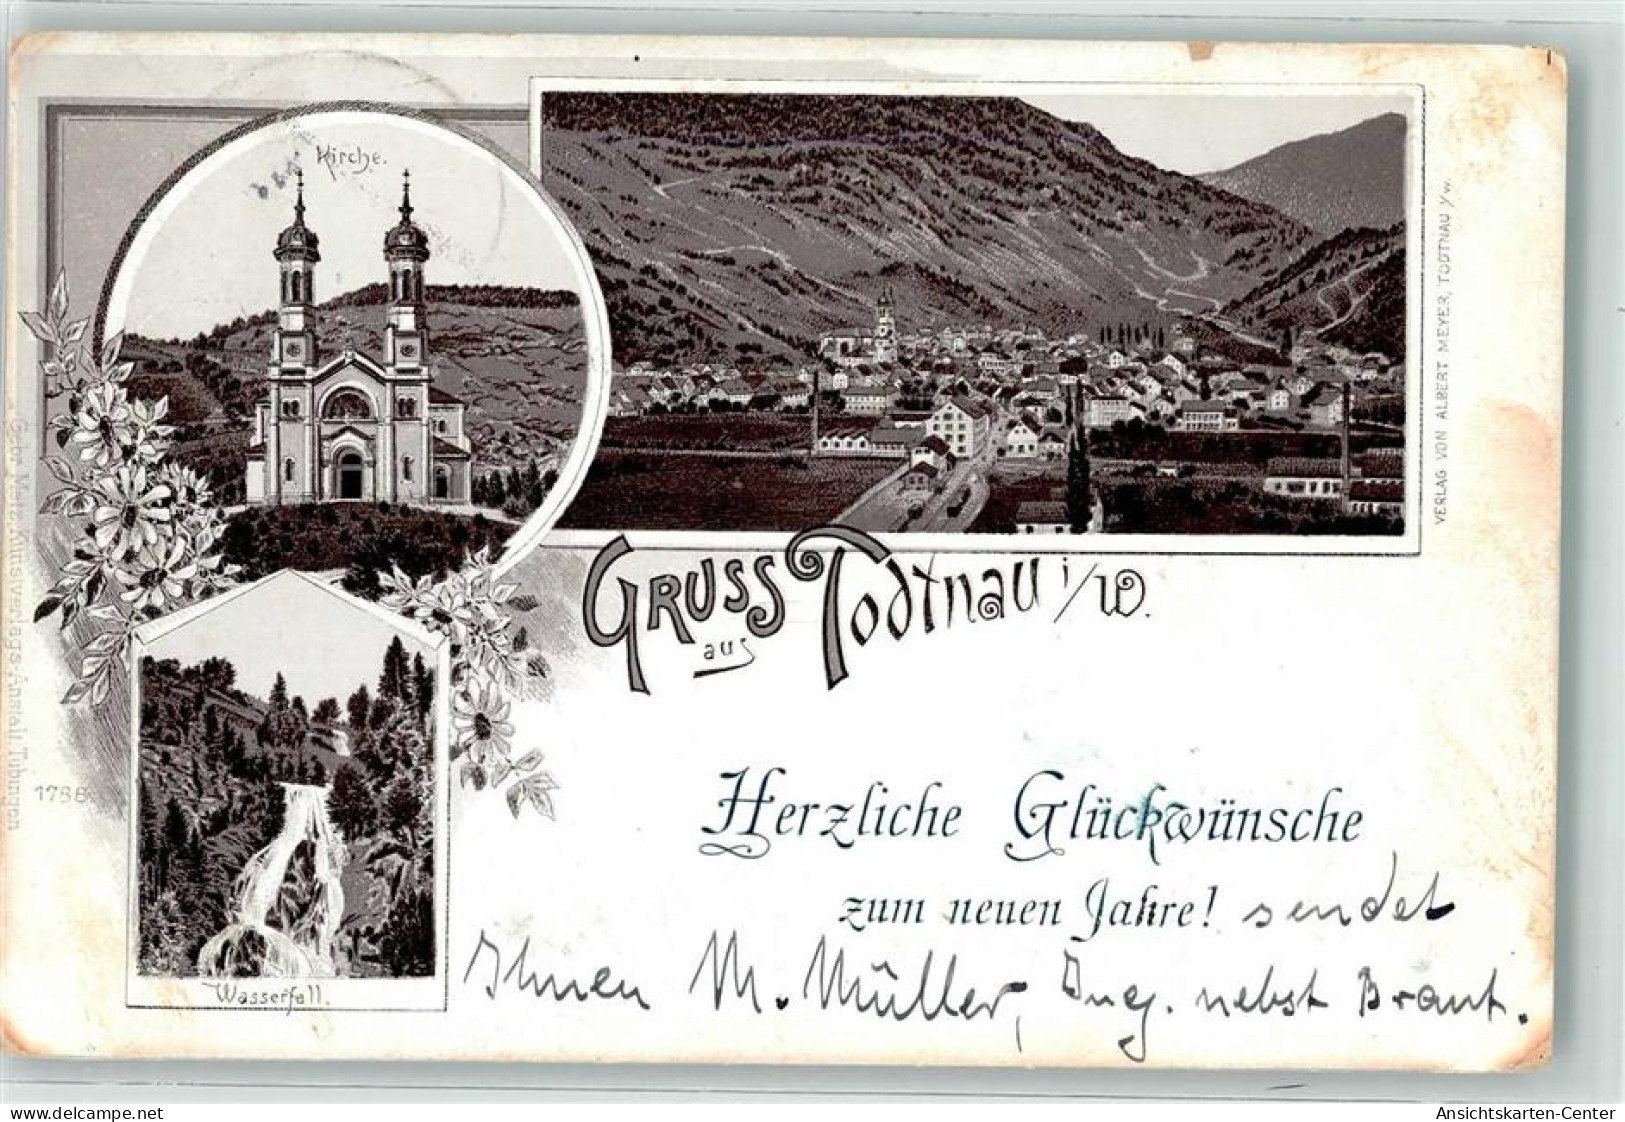 Kirche.
VERLAG VON ALBERT MEYER, TODTNAU i/W.
GRUSS
aus
Todtnau i/W.
Wasserfall.
1788
Herzliche Glückwünsche
zum neuen Jahre! sendet
Ihnen M. Müller, Ing. nebst Braut.
www.delcampe.net/marceldu
Ansichtskarten-Center